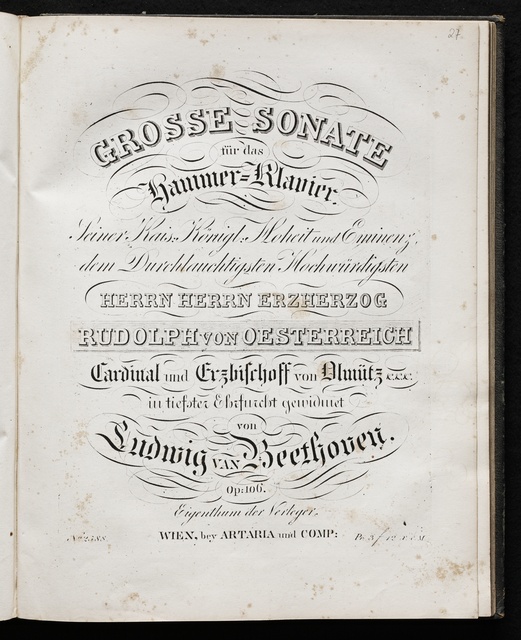 27.
GROSSE SONATE
für das
Hammer=Klavier.
Seiner Kais: Königl: Hoheit und Eminenz,
dem Durchlauchtigsten Hochwürdigsten
HERRN HERRN ERZHERZOG
RUDOLPH VON OESTERREICH
Cardinal und Erzbischoff von Olmütz &c.&c.&c.
in tiefster Ehrfurcht gewidmet
von
Ludwig VAN Beethoven.
Op: 106.
Eigenthum der Verleger.
No. 2588.
WIEN, bey ARTARIA und COMP: